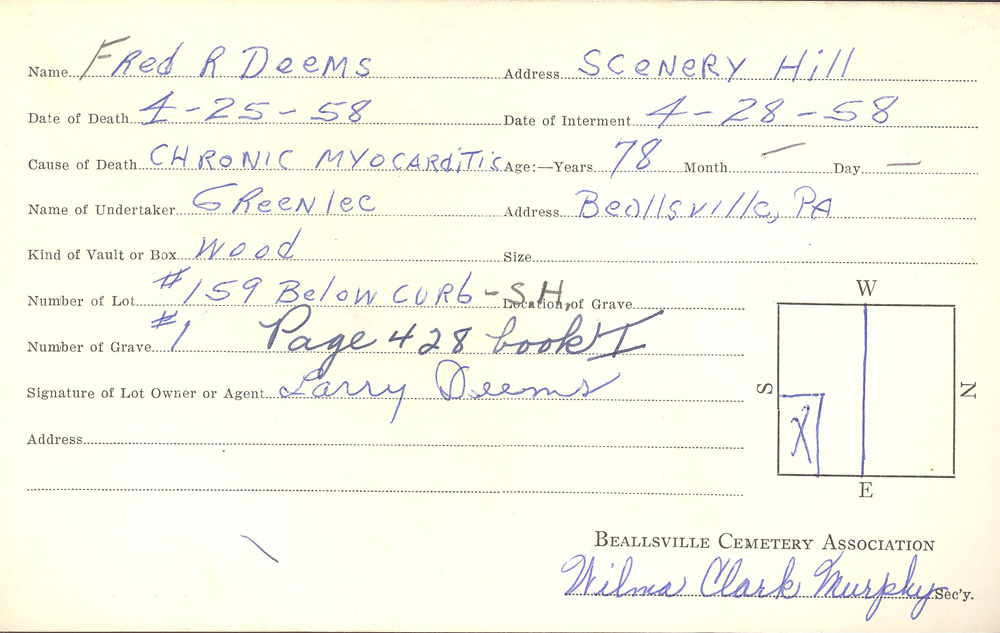 Name Fred R Deems Address Scenery Hill
Date of Death 4-25-58 Date of Interment 4-28-58
Cause of Death Chronic Myocarditis Age:—Years 78 Month — Day —
Name of Undertaker Greenlee Address Beallsville, PA
Kind of Vault or Box Wood Size
Number of Lot #159 Below Curb - S.H. Location of Grave
Number of Grave #1 Page 428 book I
Signature of Lot Owner or Agent Larry Deems
Address
W
S
N
X
E
Beallsville Cemetery Association
Wilma Clark Murphy Sec'y.